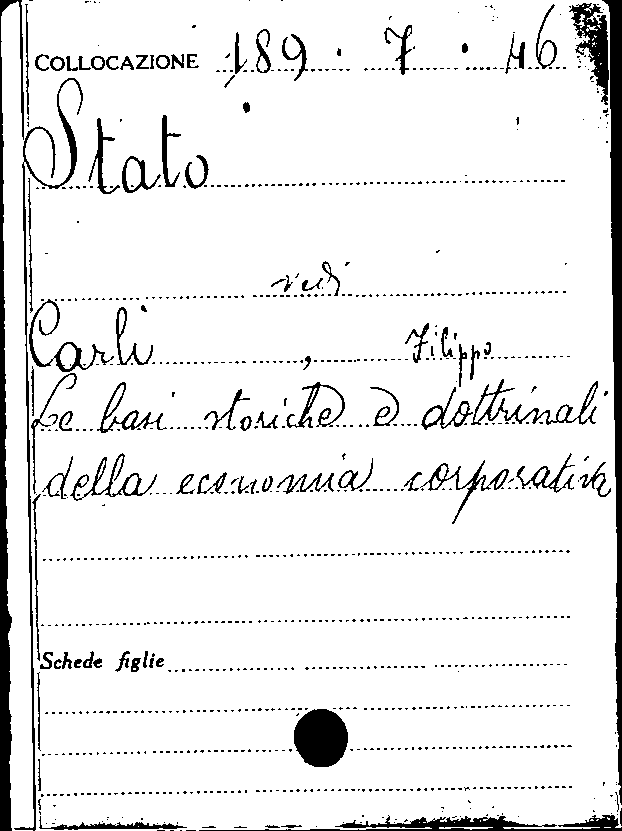 COLLOCAZIONE 189 . 7 . 46
Stato
vedi
Carli , Filippo
Le basi storiche e dottrinali
della economia corporativa
Schede figlie